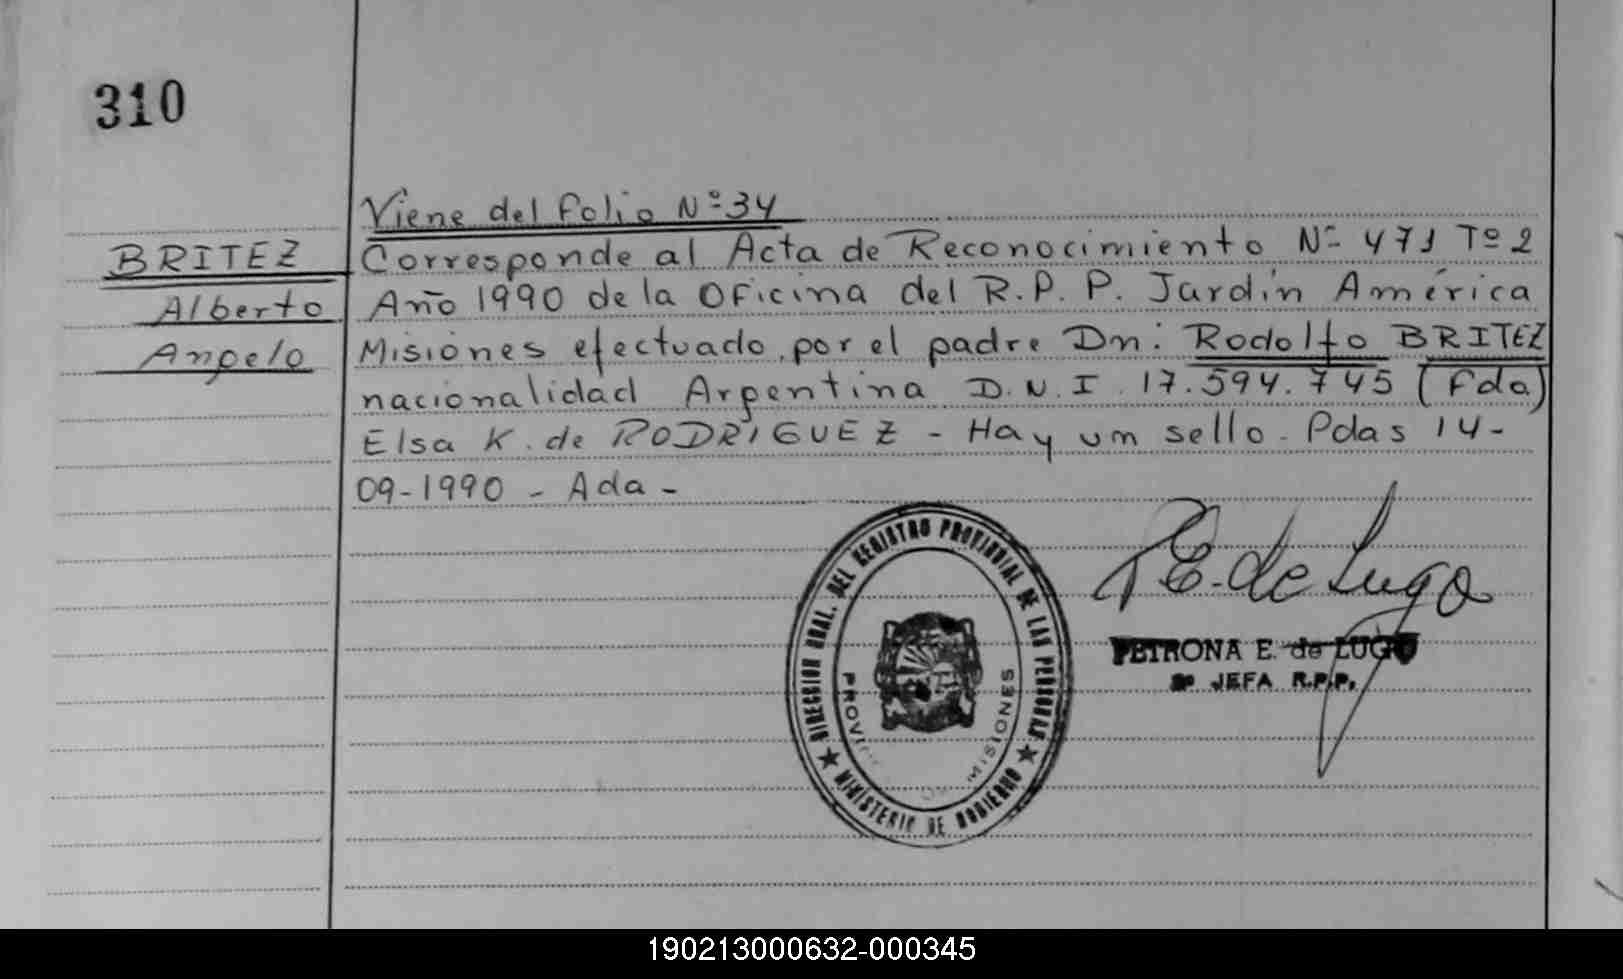 310
Viene del folio Nº 34
BRITEZ
Corresponde al Acta de Reconocimiento Nº 471 Tº 2
Alberto
Año 1990 de la Oficina del R.P.P. Jardín América
Angelo
Misiones efectuado por el padre Dn: Rodolfo BRITEZ
nacionalidad Argentina D.N.I. 17.594.745 (Fda)
Elsa K. de RODRIGUEZ - Hay un sello - Pdas 14-
09-1990 - Ada -
DIRECCION GRAL. DEL REGISTRO PROVINCIAL DE LAS PERSONAS
★ MINISTERIO DE GOBIERNO ★
MISIONES
P.E. de Lugo
PETRONA E. de LUGO
JEFA R.P.P.
190213000632-000345